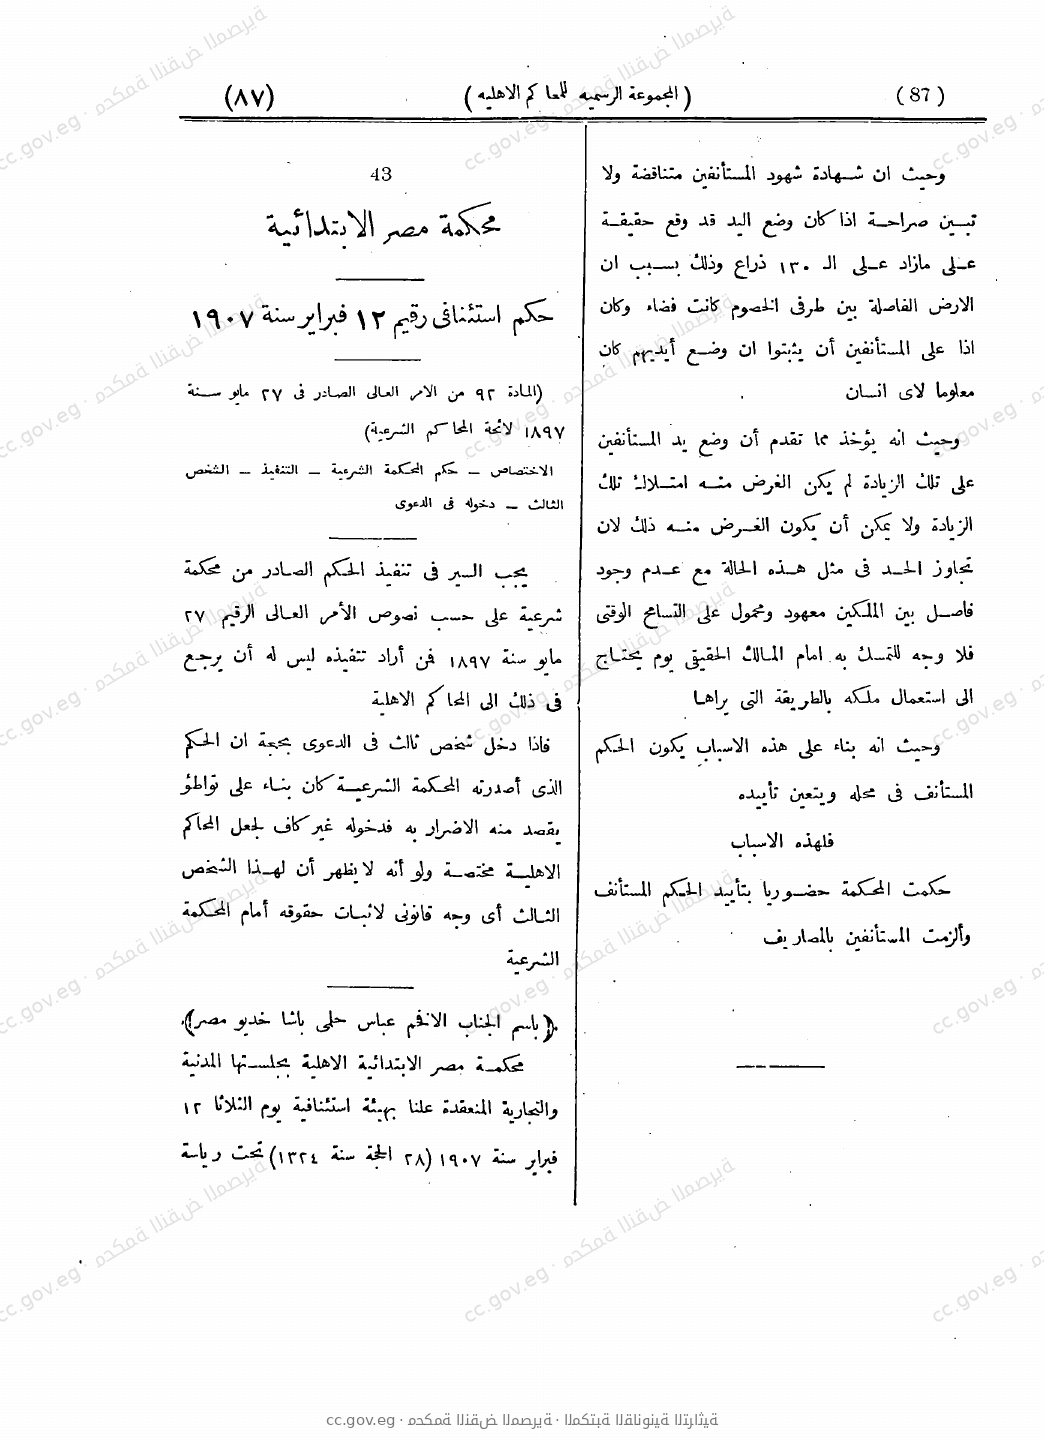 (87)
(المجموعة الرسمية للمحاكم الاهلية)
(٨٧)
وحيث ان شهادة شهود المستأنفين متناقضة ولا
تبين صراحة اذا كان وضع اليد قد وقع حقيقة
على مازاد على الـ ١٣٠ ذراع وذلك بسبب ان
الارض الفاصلة بين طرفى الخصوم كانت فضاء وكان
اذا على المستأنفين أن يثبتوا ان وضع أيديهم كان
معلوما لاى انسان
وحيث انه يؤخذ مما تقدم أن وضع يد المستأنفين
على تلك الزيادة لم يكن الغرض منه امتلاك تلك
الزيادة ولا يمكن أن يكون الغرض منه ذلك لان
تجاوز الحد فى مثل هذه الحالة مع عدم وجود
فاصل بين الملكين معهود ومحمول على التسامح الوقتى
فلا وجه للتمسك به امام المالك الحقيقى يوم يحتاج
الى استعمال ملكه بالطريقة التى يراها
وحيث انه بناء على هذه الاسباب يكون الحكم
المستأنف فى محله ويتعين تأييده
فلهذه الاسباب
حكمت المحكمة حضوريا بتأييد الحكم المستأنف
وألزمت المستأنفين بالمصاريف
43
محكمة مصر الابتدائية
حكم استئنافى رقيم ١٢ فبراير سنة ١٩٠٧
(المادة ٩٢ من الامر العالى الصادر فى ٢٧ مايو سنة
١٨٩٧ لائحة المحاكم الشرعية)
الاختصاص – حكم المحكمة الشرعية – التنفيذ – الشخص
الثالث – دخوله فى الدعوى
يجب السير فى تنفيذ الحكم الصادر من محكمة
شرعية على حسب نصوص الأمر العالى الرقيم ٢٧
مايو سنة ١٨٩٧ فمن أراد تنفيذه ليس له أن يرجع
فى ذلك الى المحاكم الاهلية
فاذا دخل شخص ثالث فى الدعوى بحجة ان الحكم
الذى أصدرته المحكمة الشرعية كان بناء على تواطؤ
يقصد منه الاضرار به فدخوله غير كاف لجعل المحاكم
الاهلية مختصة ولو أنه لا يظهر أن لهذا الشخص
الثالث أى وجه قانونى لاثبات حقوقه أمام المحكمة
الشرعية
(باسم الجناب الافخم عباس حلمى باشا خديو مصر)
محكمة مصر الابتدائية الاهلية بجلستها المدنية
والتجارية المنعقدة علنا بهيئة استئنافية يوم الثلاثا ١٢
فبراير سنة ١٩٠٧ (٢٨ الحجة سنة ١٣٢٤) تحت رياسة
cc.gov.eg · محكمة النقض المصرية · المكتبة القانونية التراثية